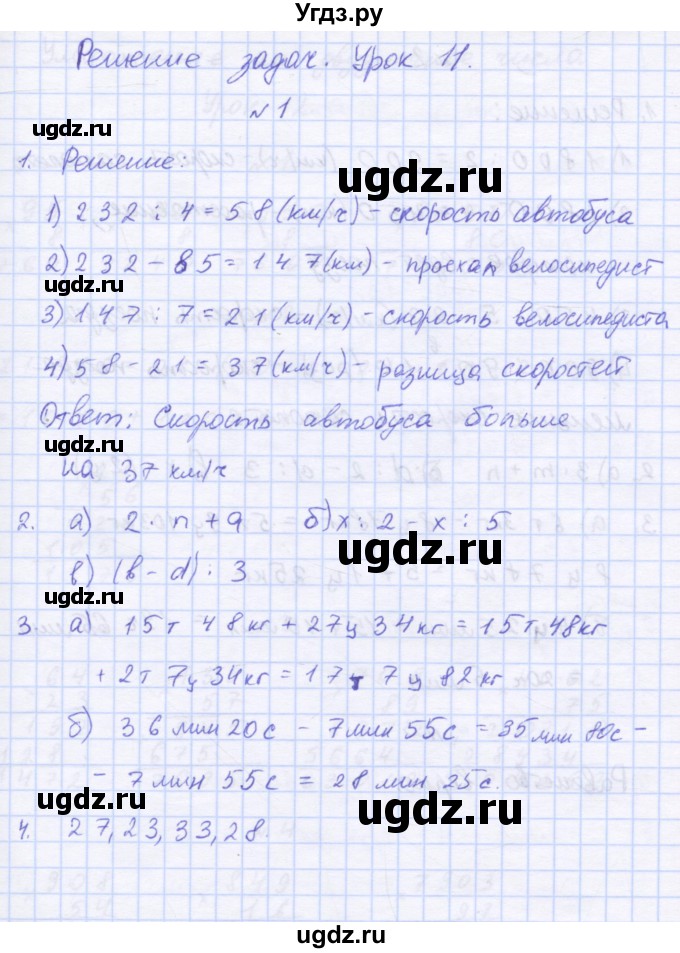 Угдз.ру
Решение задач. Урок 11.
№1
ugdz.ru
1. Решение:
ugdz.ru
1) 232 : 4 = 58 (км/ч) - скорость автобуса
2) 232 - 85 = 147 (км) - проехал велосипедист
ugdz.ru
3) 147 : 7 = 21 (км/ч) - скорость велосипедиста
ugdz.ru
4) 58 - 21 = 37 (км/ч) - разница скоростей
Ответ: Скорость автобуса больше
ugdz.ru
на 37 км/ч
2. а) 2 · n + 9 б) x : 2 - x : 5
ugdz.ru
в) (b - d) : 3
ugdz.ru
3. а) 15 т 48 кг + 27 ц 34 кг = 15 т 48 кг
+ 2 т 7 ц 34 кг = 17 т 7 ц 82 кг
ugdz.ru
б) 36 мин 20 с - 7 мин 55 с = 35 мин 80 с -
- 7 мин 55 с = 28 мин 25 с.
ugdz.ru
ugdz.ru
4. 27, 23, 33, 28.
ugdz.ru
ugdz.ru